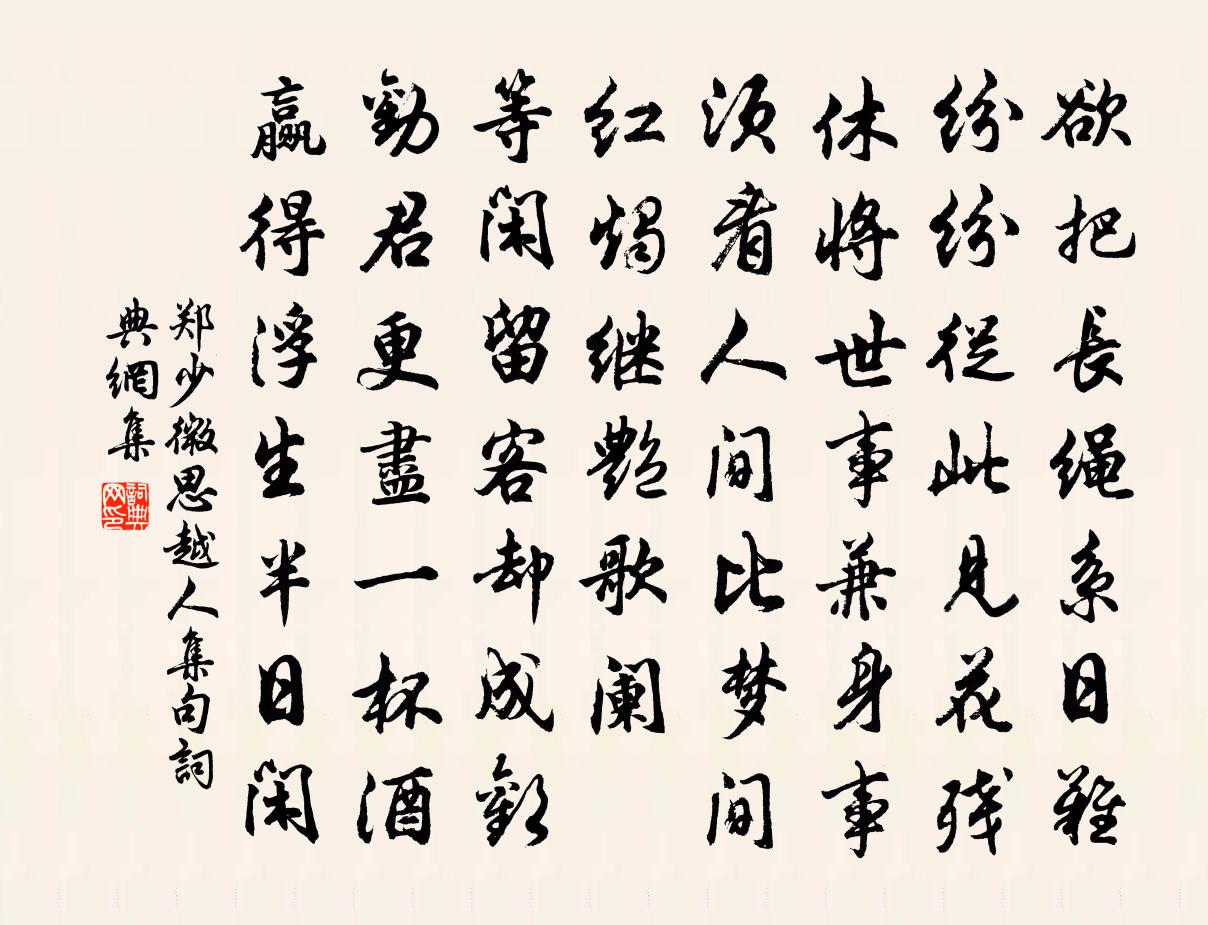 欲把長绳系日難
纷纷從此見花残
休將世事兼身事
须看人间比梦间
红烛继艷歌阑
等闲留客却成歡
勸君更盡一杯酒
贏得浮生半日闲
郑少微思越人集句詞
典網集
詞典网印